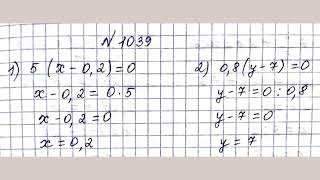 № 1039
1) 5 (x-0,2)=0
x-0,2=0·5
x-0,2=0
x=0,2
2) 0,8(y-7)=0
y-7=0:0,8
y-7=0
y=7